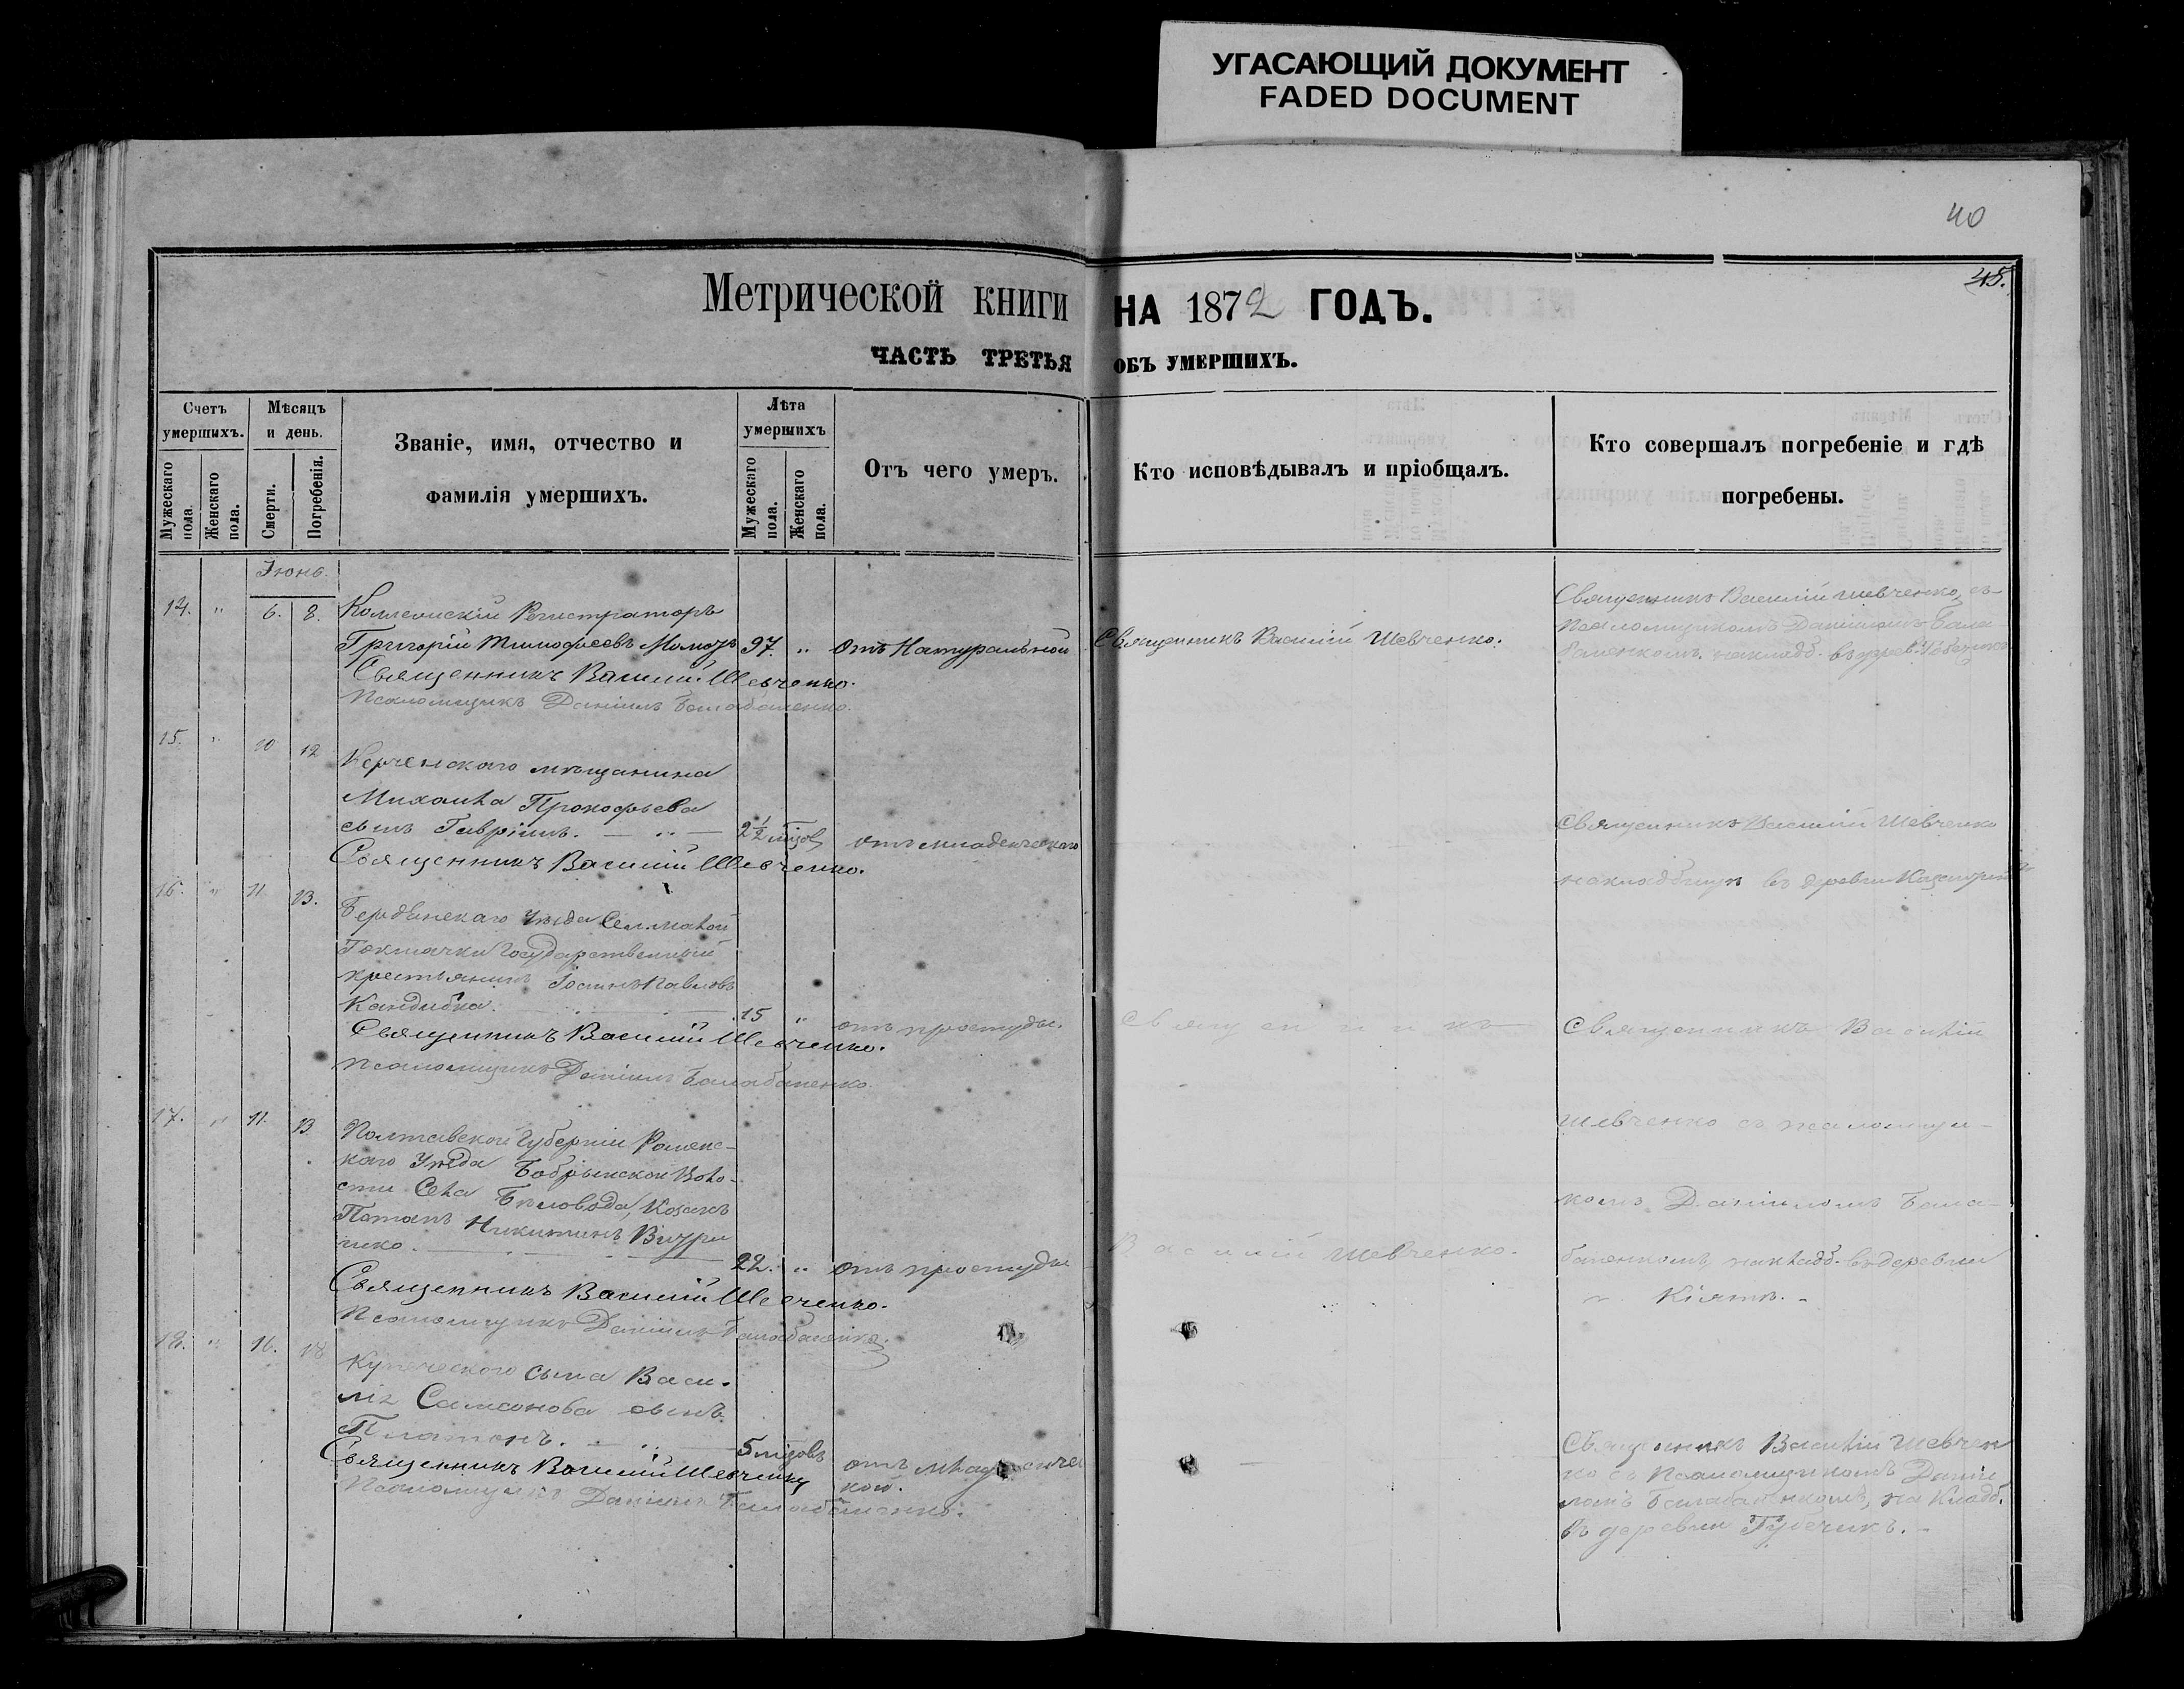 УГАСАЮЩИЙ ДОКУМЕНТ
FADED DOCUMENT
40
45.
Метрической книги НА 1872 ГОДЪ.
ЧАСТЬ ТРЕТЬЯ ОБЪ УМЕРШИХЪ.
Счетъ умершихъ.
Мужескаго пола.
Женскаго пола.
Мѣсяцъ и день.
Смерти.
Погребенія.
Званіе, имя, отчество и
фамилія умершихъ.
Лѣта умершихъ
Мужескаго пола.
Женскаго пола.
Отъ чего умеръ.
Кто исповѣдывалъ и пріобщалъ.
Кто совершалъ погребеніе и гдѣ
погребены.
Іюнь.
14. " 6. 8. Коллежскій Регистраторъ
Григорій Тимофеевъ 97. " отъ Натуральной
Священникъ Василій Шевченко.
Псаломщикъ Даніилъ Балабаненко.
Священникъ Василій Шевченко.
Священникъ Василій Шевченко, съ
Псаломщикомъ Даніиломъ Бала-
баненкомъ, на кладб. въ дерев.
15. " 10 12 Керченскаго мѣщанина
Михаила Прокофьева
сынъ Гавріилъ. — " — 2½ годов отъ младенческаго
Священникъ Василій Шевченко.
Священникъ Василій Шевченко
на кладбищѣ въ деревни
16. " 11. 13. Бердянскаго Уѣзда Сел. Малой
Токмачки Государственный
крестьянинъ Іоаннъ Павловъ
Кандибка. 15 " отъ простуды.
Священникъ Василій Шевченко.
Псаломщикъ Даніилъ Балабаненко.
Священникъ
Священникъ Василій
17. " 11. 13. Полтавской Губерніи Роменс-
каго Уѣзда Бобрикской Воло-
сти Села Бѣловода, Козакъ
Потапъ Никитинъ
22. " отъ простуды
Священникъ Василій Шевченко.
Псаломщикъ Даніилъ Балабаненко.
Василій Шевченко.
Шевченко съ псаломщи-
комъ Даніиломъ Бала-
баненкомъ, на кладб. въ деревни
" Кіятъ. -
18. " 16. 18 Купеческаго сына Васи-
лія Самсонова сынъ
Платонъ. 5 годовъ отъ младенчес
кой.
Священникъ Василій Шевченко
Псаломщикъ Даніилъ Балабаненко.
Священникъ Василій Шевчен
ко съ Псаломщикомъ Даніи
ломъ Балабаненкомъ, на Кладб.
въ деревни